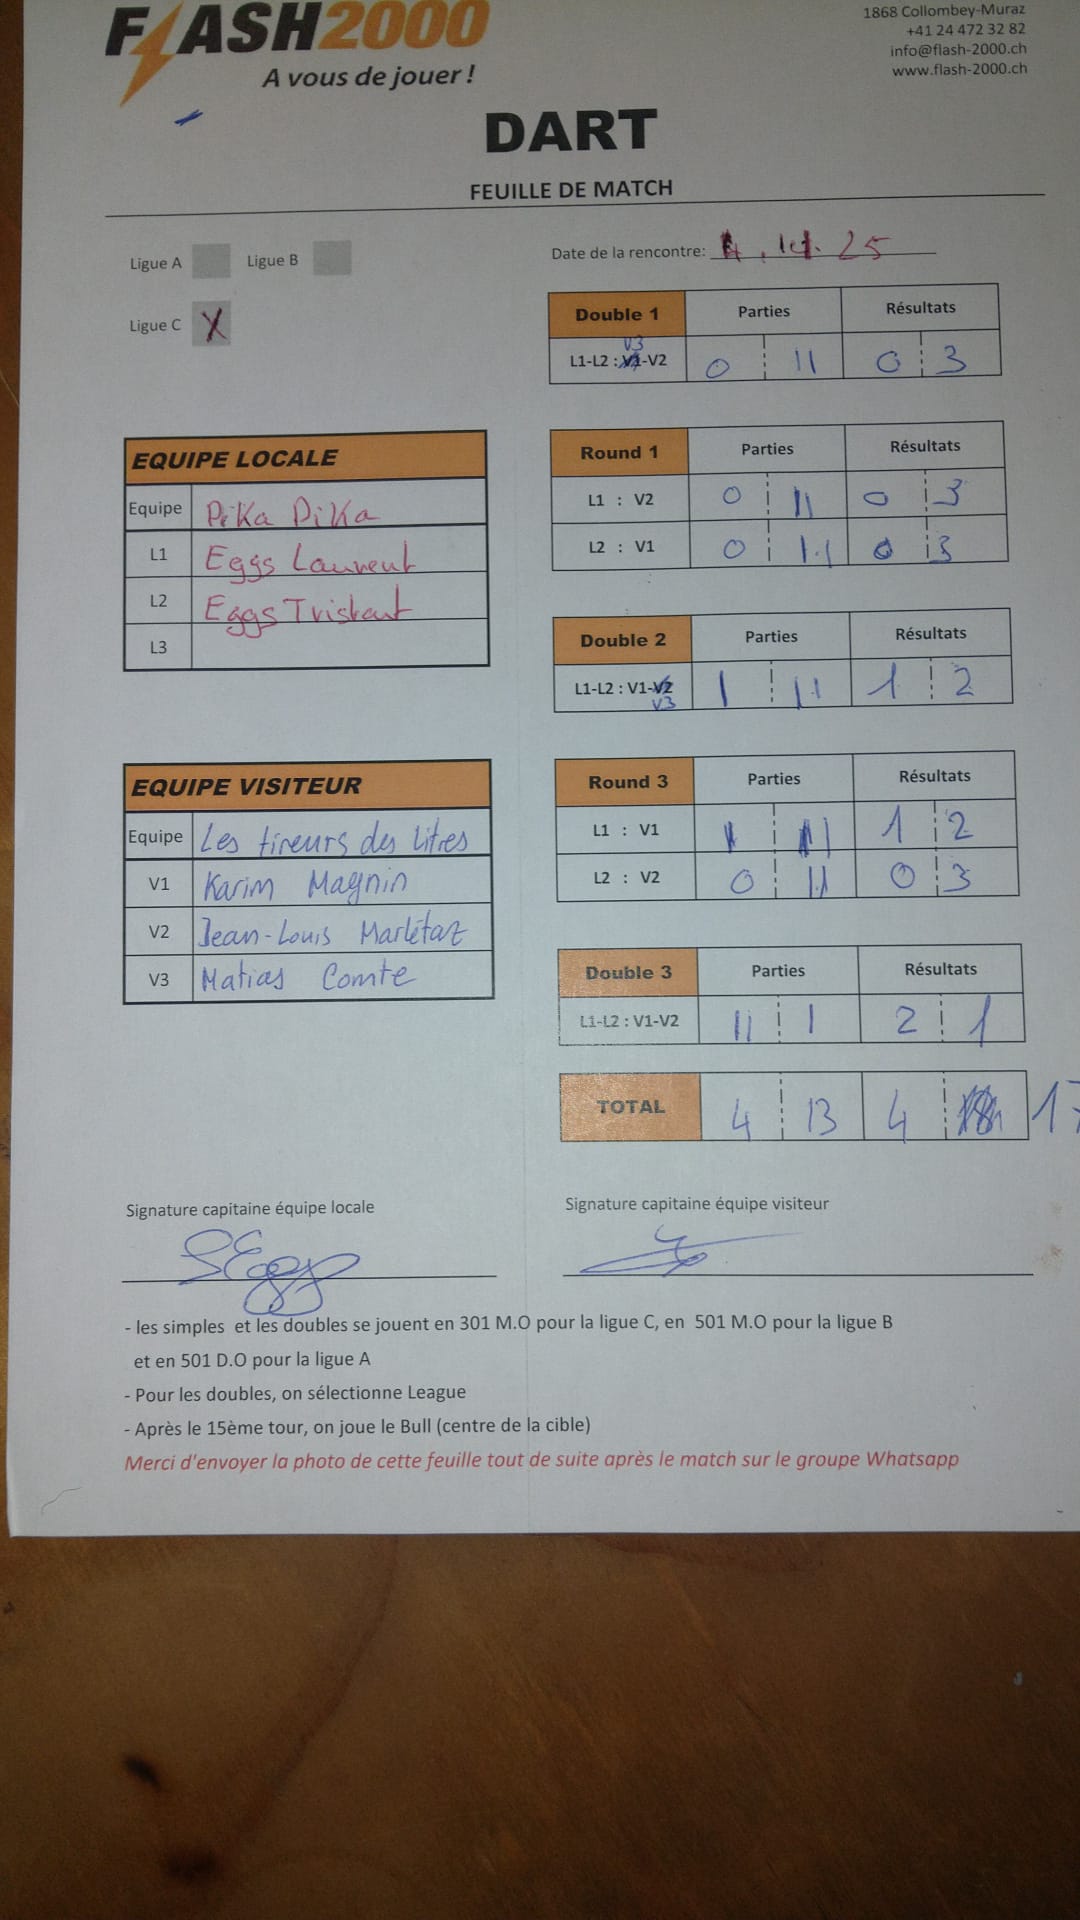 FLASH2000
A vous de jouer !
1868 Collombey-Muraz
+41 24 472 32 82
info@flash-2000.ch
www.flash-2000.ch
DART
FEUILLE DE MATCH
Ligue A
Ligue B
Ligue C X
Date de la rencontre: 25
Double 1 Parties Résultats
V3
L1-L2 : V1-V2 0 11 0 3
Round 1 Parties Résultats
L1 : V2 0 11 0 3
L2 : V1 0 11 0 3
Double 2 Parties Résultats
L1-L2 : V1-V2 1 11 1 2
V3
Round 3 Parties Résultats
L1 : V1 1 11 1 2
L2 : V2 0 11 0 3
Double 3 Parties Résultats
L1-L2 : V1-V2 11 1 2 1
TOTAL 4 13 4 17
EQUIPE LOCALE
Equipe Pika Pika
L1 Eggs Laurent
L2 Eggs
L3
EQUIPE VISITEUR
Equipe Les tireurs des litres
V1 Karim Magnin
V2 Jean-Louis Marlétaz
V3 Matias Comte
Signature capitaine équipe locale
Signature capitaine équipe visiteur
- les simples et les doubles se jouent en 301 M.O pour la ligue C, en 501 M.O pour la ligue B
et en 501 D.O pour la ligue A
- Pour les doubles, on sélectionne League
- Après le 15ème tour, on joue le Bull (centre de la cible)
Merci d'envoyer la photo de cette feuille tout de suite après le match sur le groupe Whatsapp